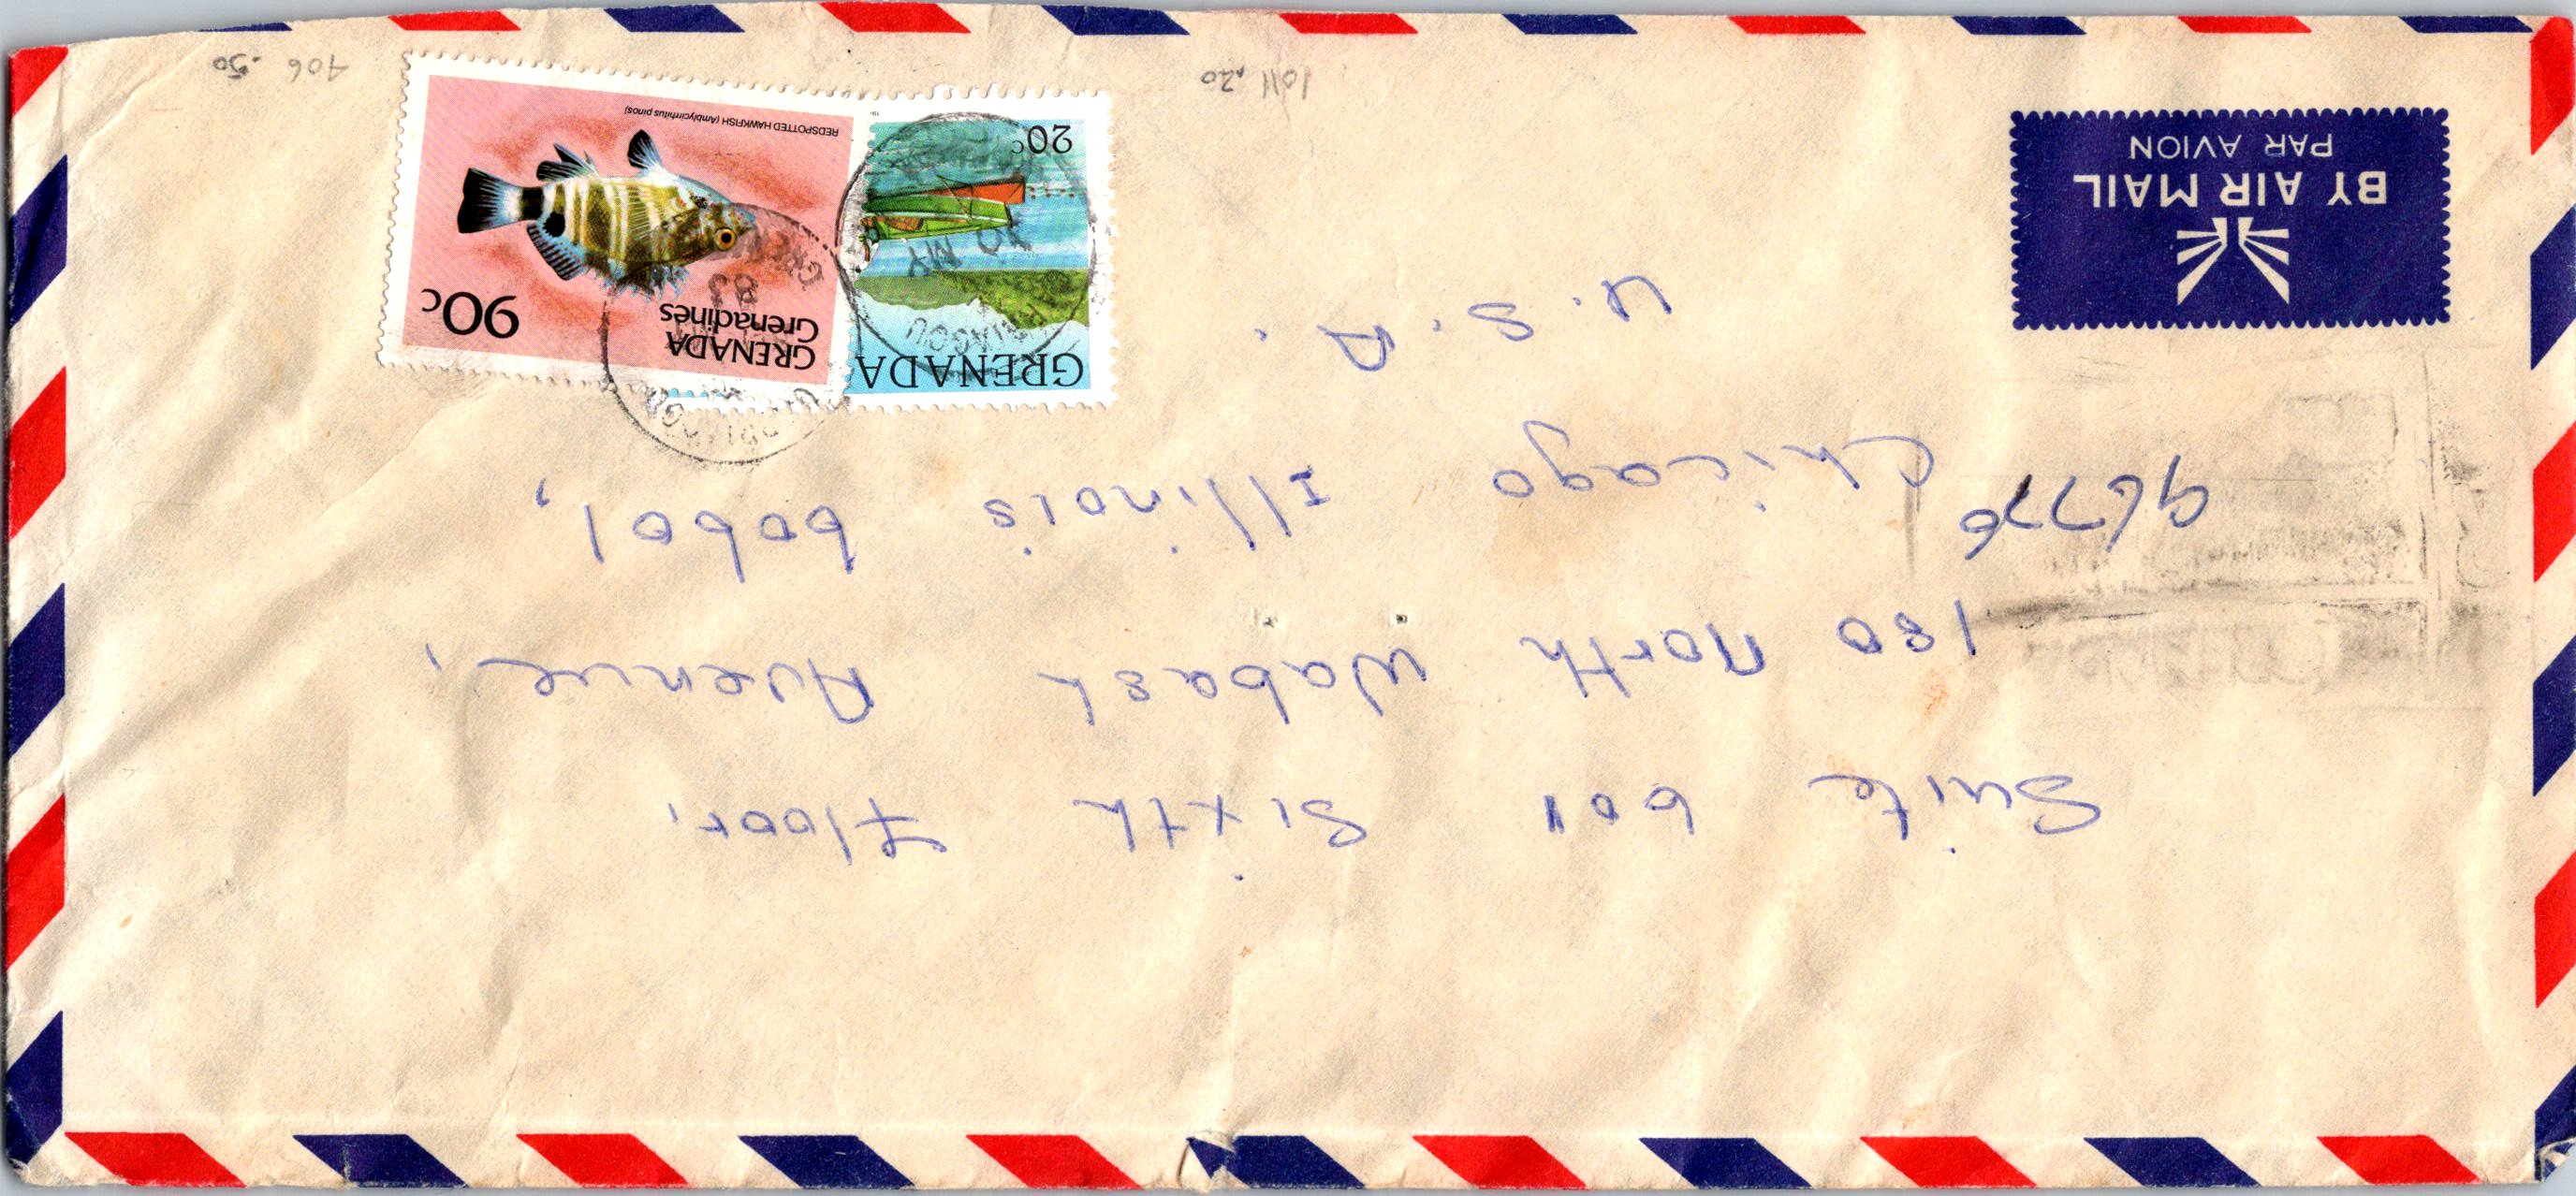 Suite 601 Sixth Floor,
180 North Wabash Avenue,
96776
Chicago Illinois 60601,
U. S. A.
BY AIR MAIL
PAR AVION
GRENADA
20c
GRENADA
Grenadines
90c
REDSPOTTED HAWKFISH (Amblycirrhitus pinos)
MY
83
1011 .20
406 .50